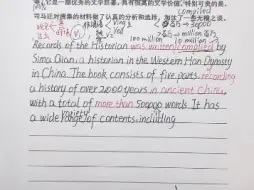 它是一部优秀的文学巨著,具有很高的文学价值,特别可贵的是,
司马迁对搜集的材料做了认真的分析和选择,淘汰了一些无稽之谈,
compiled
100 million
10 million
Records of the Historian was written/compiled by
Sima Qian, a historian in the Western Han Dynasty
in China. The book consists of five parts, recording
a history of over 2000 years in ancient China,
with a total of more than 500000 words. It has
variety
a wide range of contents, including